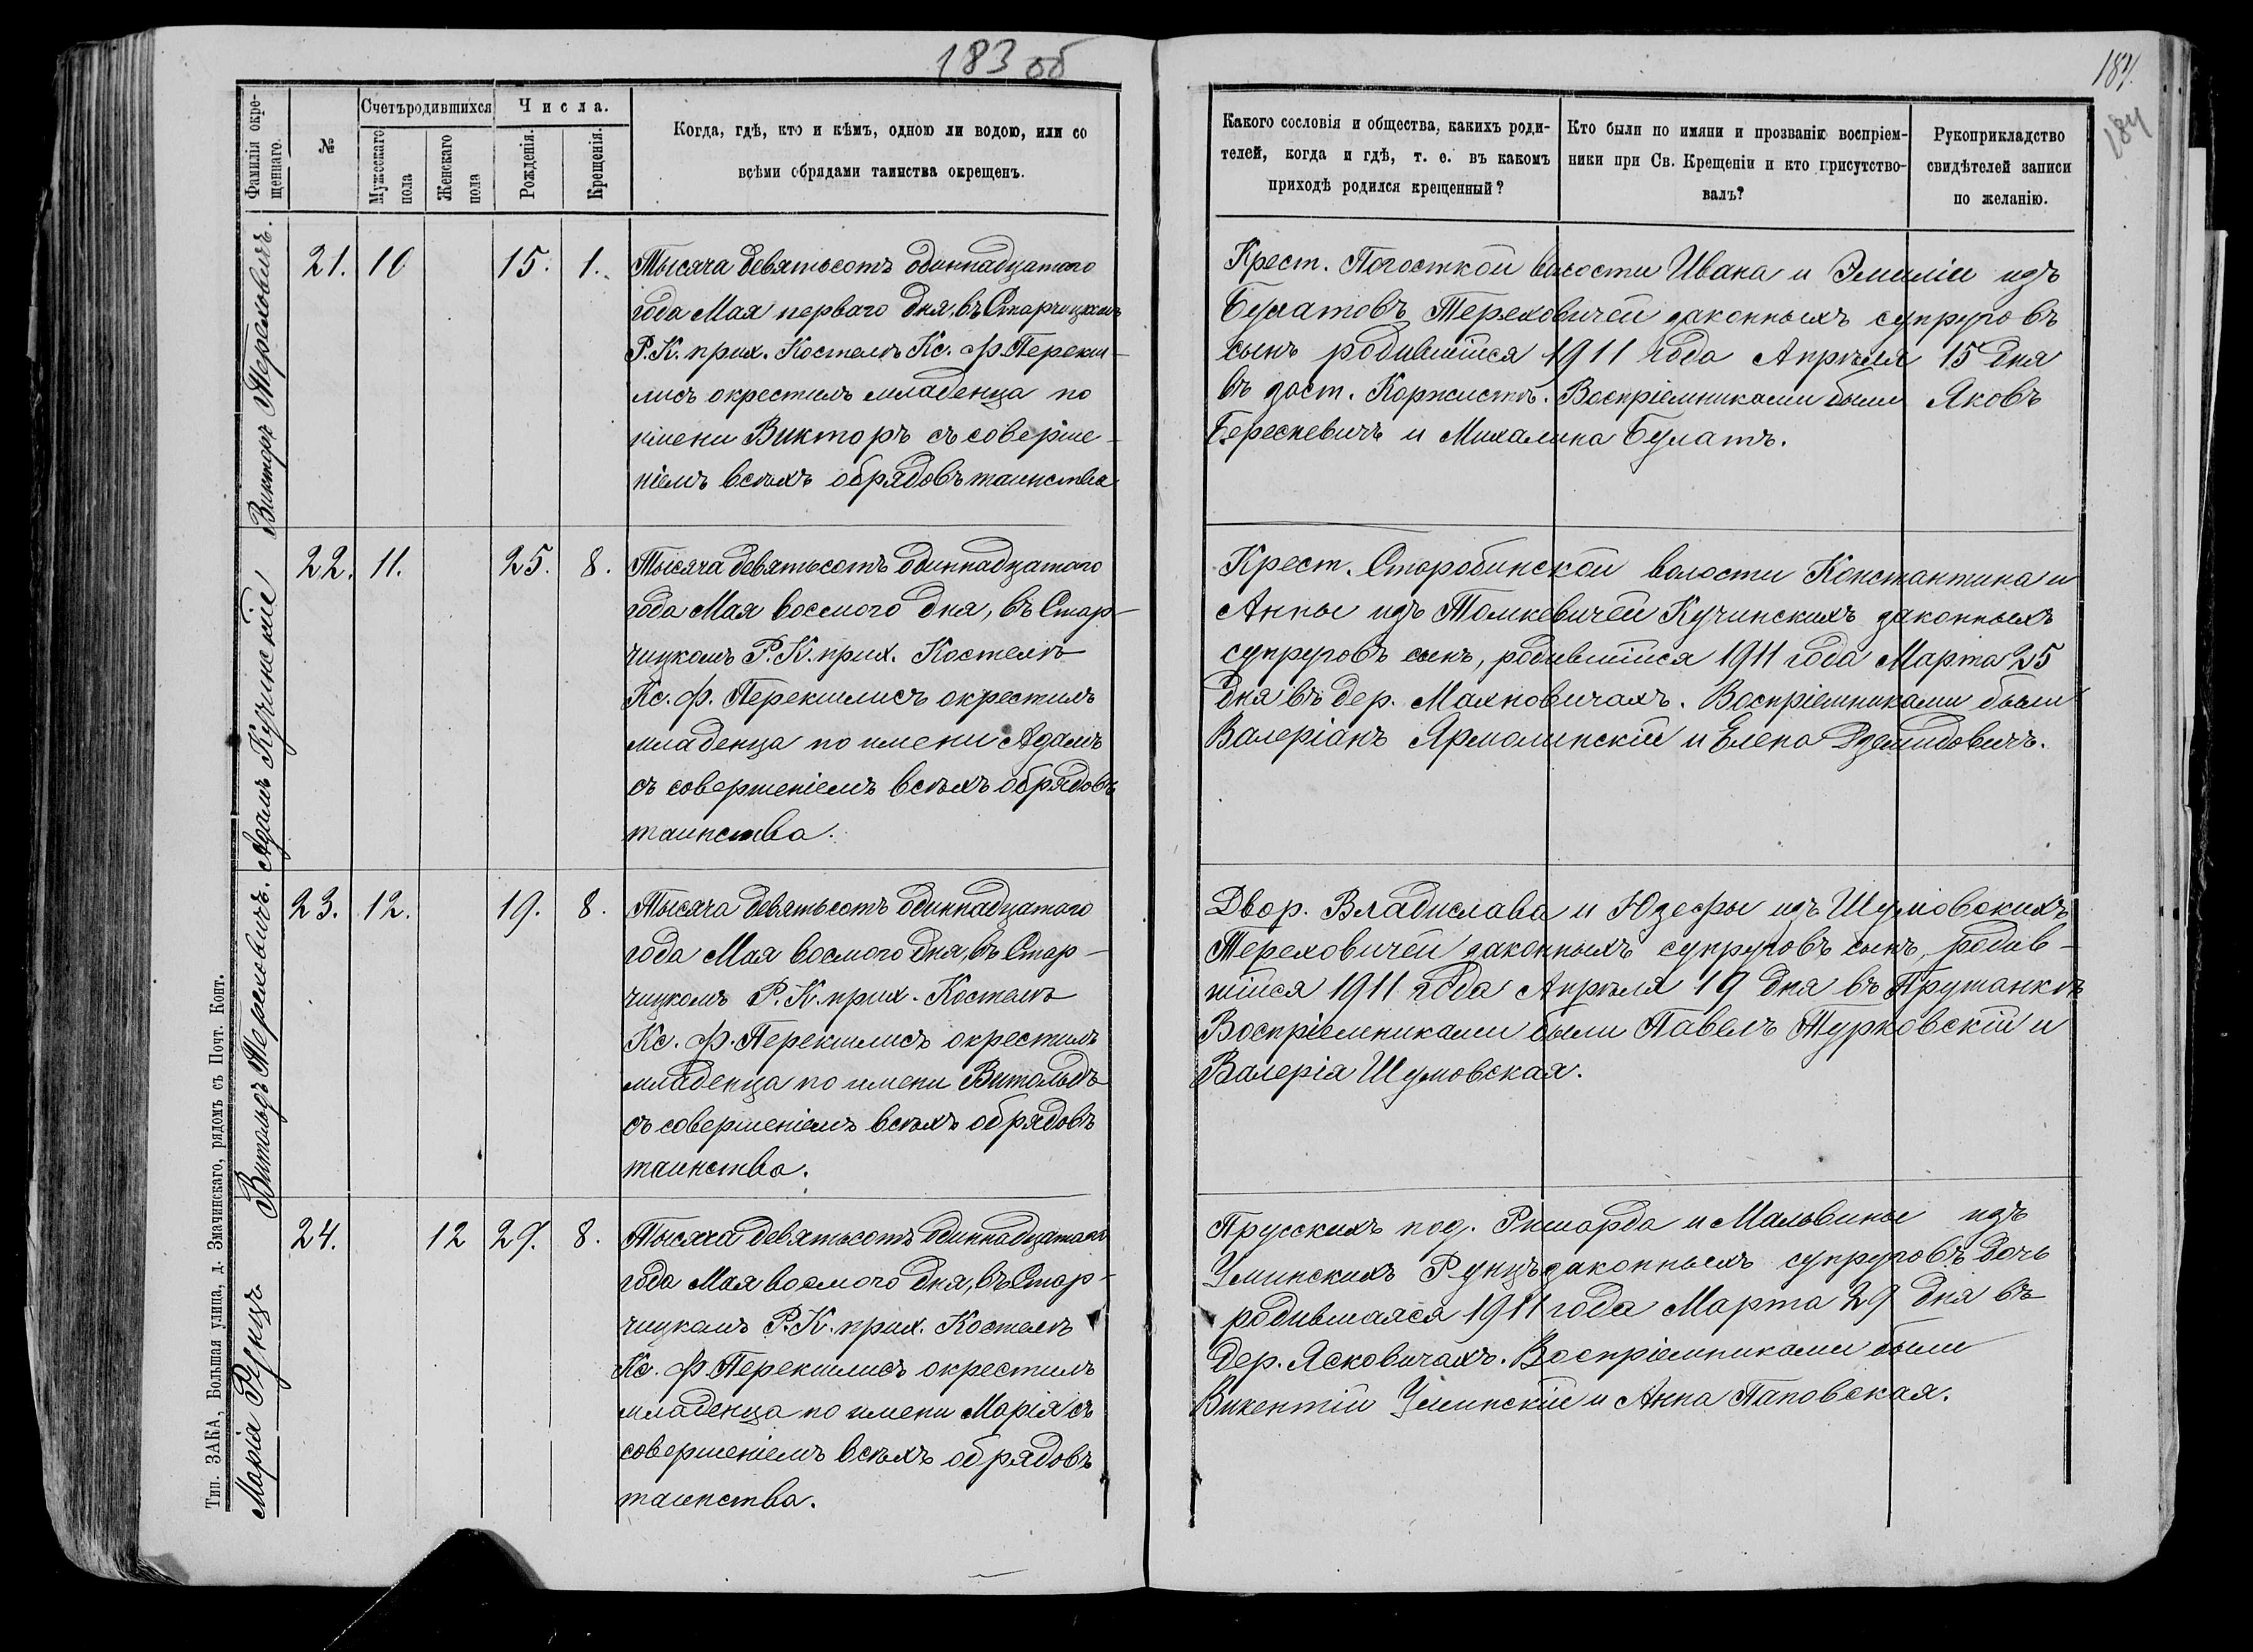 183 об
Фамилія окре-
щеннаго.
№
Счетъ родившихся
Мужескаго
пола
Женскаго
пола
Числа.
Рожденія.
Крещенія.
Когда, гдѣ, кто и кѣмъ, одною ли водою, или со
всѣми обрядами таинства окрещенъ.
Викторъ Тереховичъ.
21. 10 15. 1.
Тысяча девятьсотъ одиннадцатаго
года Мая перваго дня, въ Старчицкомъ
Р. К. прих. Костелѣ Кс. Ф. Перекш-
лисъ окрестилъ младенца по
имени Викторъ съ соверше-
ніемъ всѣхъ обрядовъ таинства
Адамъ Кучинскій
22. 11. 25. 8.
Тысяча девятьсотъ одиннадцатаго
года Мая восмого дня, въ Стар-
чицкомъ Р. К. прих. Костелѣ
Кс. Ф. Перекшлисъ окрестилъ
младенца по имени Адамъ
съ совершеніемъ всѣхъ обрядовъ
таинства.
Витольдъ Тереховичъ.
23. 12. 19. 8.
Тысяча девятьсотъ одиннадцатаго
года Мая восмого дня, въ Стар-
чицкомъ Р. К. прих. Костелѣ
Кс. Ф. Перекшлисъ окрестилъ
младенца по имени Витольдъ
съ совершеніемъ всѣхъ обрядовъ
таинства.
Марія Рунцъ
24. 12 29. 8.
Тысяча девятьсотъ одиннадцатаго
года Мая восмого дня, въ Стар-
чицкомъ Р. К. прих. Костелѣ
Кс. Ф. Перекшлисъ окрестилъ
младенца по имени Марія съ
совершеніемъ всѣхъ обрядовъ
таинства.
Тип. ЗАКА, Большая улица, д. Змачинскаго, рядомъ съ Почт. Конт.
184.
184
Какого сословія и общества, какихъ роди-
телей, когда и гдѣ, т. е. въ какомъ
приходѣ родился крещенный?
Кто были по имяни и прозванію воспріем-
ники при Св. Крещеніи и кто присутство-
валъ?
Рукоприкладство
свидѣтелей записи
по желанію.
Крест. Погосткой волости Ивана и Эмиліи изъ
Булатовъ Тереховичей законныхъ супруговъ
сынъ родившійся 1911 года Апрѣля 15 дня
въ заст. Коржистѣ. Воспріемниками были Яковъ
Бересневичъ и Михалина Булатъ.
Крест. Старобинской волости Константина и
Анны изъ Томкевичей Кучинскихъ законныхъ
супруговъ сынъ, родившійся 1911 года Марта 25
дня въ дер. Махновичахъ. Воспріемниками были
Валеріанъ Ярмолинскій и Елена Дземидовичъ.
Двор. Владислава и Юзефы изъ Шумовскихъ
Тереховичей законныхъ супруговъ сынъ, родив-
шійся 1911 года Апрѣля 19 дня въ Прутанкѣ
Воспріемниками были Павелъ Турковскій и
Валерія Шумовская.
Прусскихъ под. Ришарда и Мальвины изъ
Улинскихъ Рунцъ законныхъ супруговъ дочь
родившаяся 1911 года Марта 29 дня въ
дер. Ясковичахъ. Воспріемниками были
Викентій Улинскій и Анна Паповская.